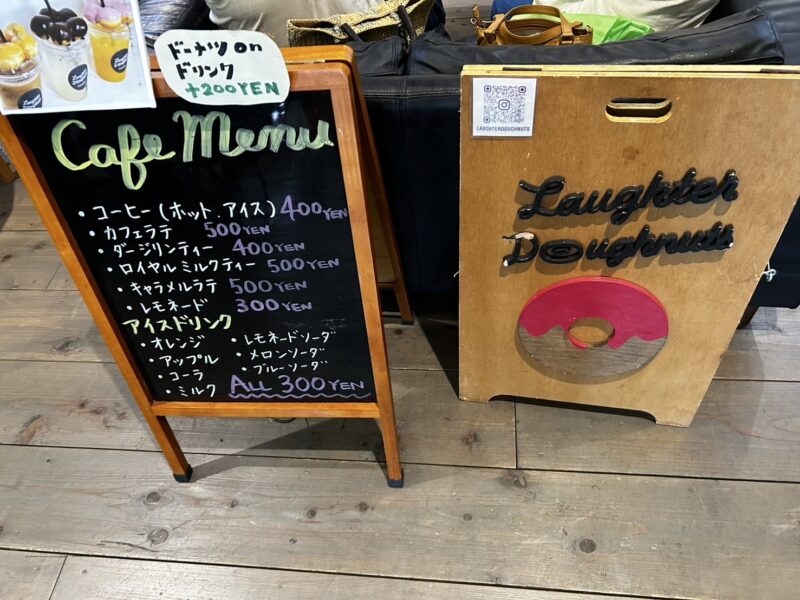 ドーナツ on
ドリンク
+200YEN
Cafe Menu
・コーヒー(ホット.アイス) 400YEN
・カフェラテ 500YEN
・ダージリンティー 400YEN
・ロイヤルミルクティー 500YEN
・キャラメルラテ 500YEN
・レモネード 300YEN
アイスドリンク
・オレンジ ・レモネードソーダ
・アップル ・メロンソーダ
・コーラ ・ブルーソーダ
・ミルク ALL 300YEN
LAUGHTERDOUGHNUTS
Laughter
Doughnuts